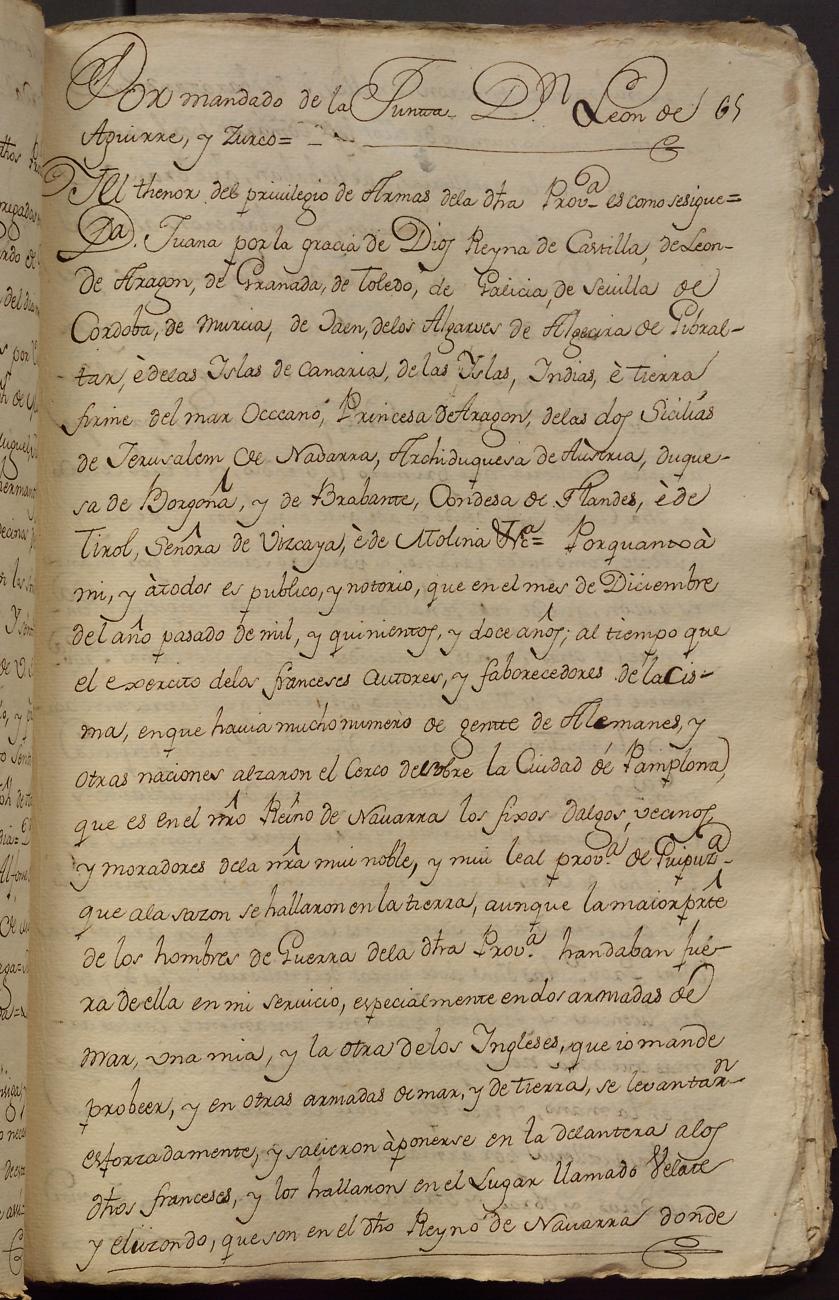 Por mandado de la Junta D.n Leon de 65
Aguirre, y Zurco=
El thenor del privilegio de Armas dela dha Prov.a es como sesigue=
D.a Juana por la gracia de Dios Reyna de Castilla, de Leon-
de Aragon, de Granada, de Toledo, de Galicia, de Sevilla de
Cordoba, de Murcia, de Jaen, delos Algarves de Algecira de Gibral-
tar, è delas Islas de Canaria, de las Yslas, Indias, è tierra
firme del mar Occeano, Princesa de Aragon, delas dos Sicilias
de Jerusalem de Nabarra, Archiduquesa de Austria, duque-
sa de Borgoña, y de Brabante, Condesa de Flandes, è de
Tirol, Señora de Vizcaya, è de Molina &c.a= Porquanto à
mi, y àtodos es publico, y notorio, que en el mes de Diciembre
del año pasado de mil, y quinientos, y doce años; al tiempo que
el exercito delos franceses autores, y faborecedores de la Cis-
ma, enque havia mucho numero de gente de Alemanes, y
otras naciones alzaron el Cerco de sobre la Ciudad de Pamplona,
que es en el nro Reino de Navarra los fixos dalgos, vecinos,
y moradores dela nra mui noble, y mui leal prov.a de Guipuz.a
que ala sazon se hallaron en la tierra, aunque la maior prte
de los hombres de Guerra dela dha Prov.a handaban fue-
ra de ella en mi servicio, especialmente en dos armadas de
mar, una mia, y la otra de los Ingleses, que io mande
probeer, y en otras armadas de mar, y de tierra, se levantarn
esforzadamente, y salieron àponerse en la delantera alos
dhos franceses, y los hallaron en el Lugar llamado Velate
y Elizondo, que son en el dho Reyno de Navarra donde